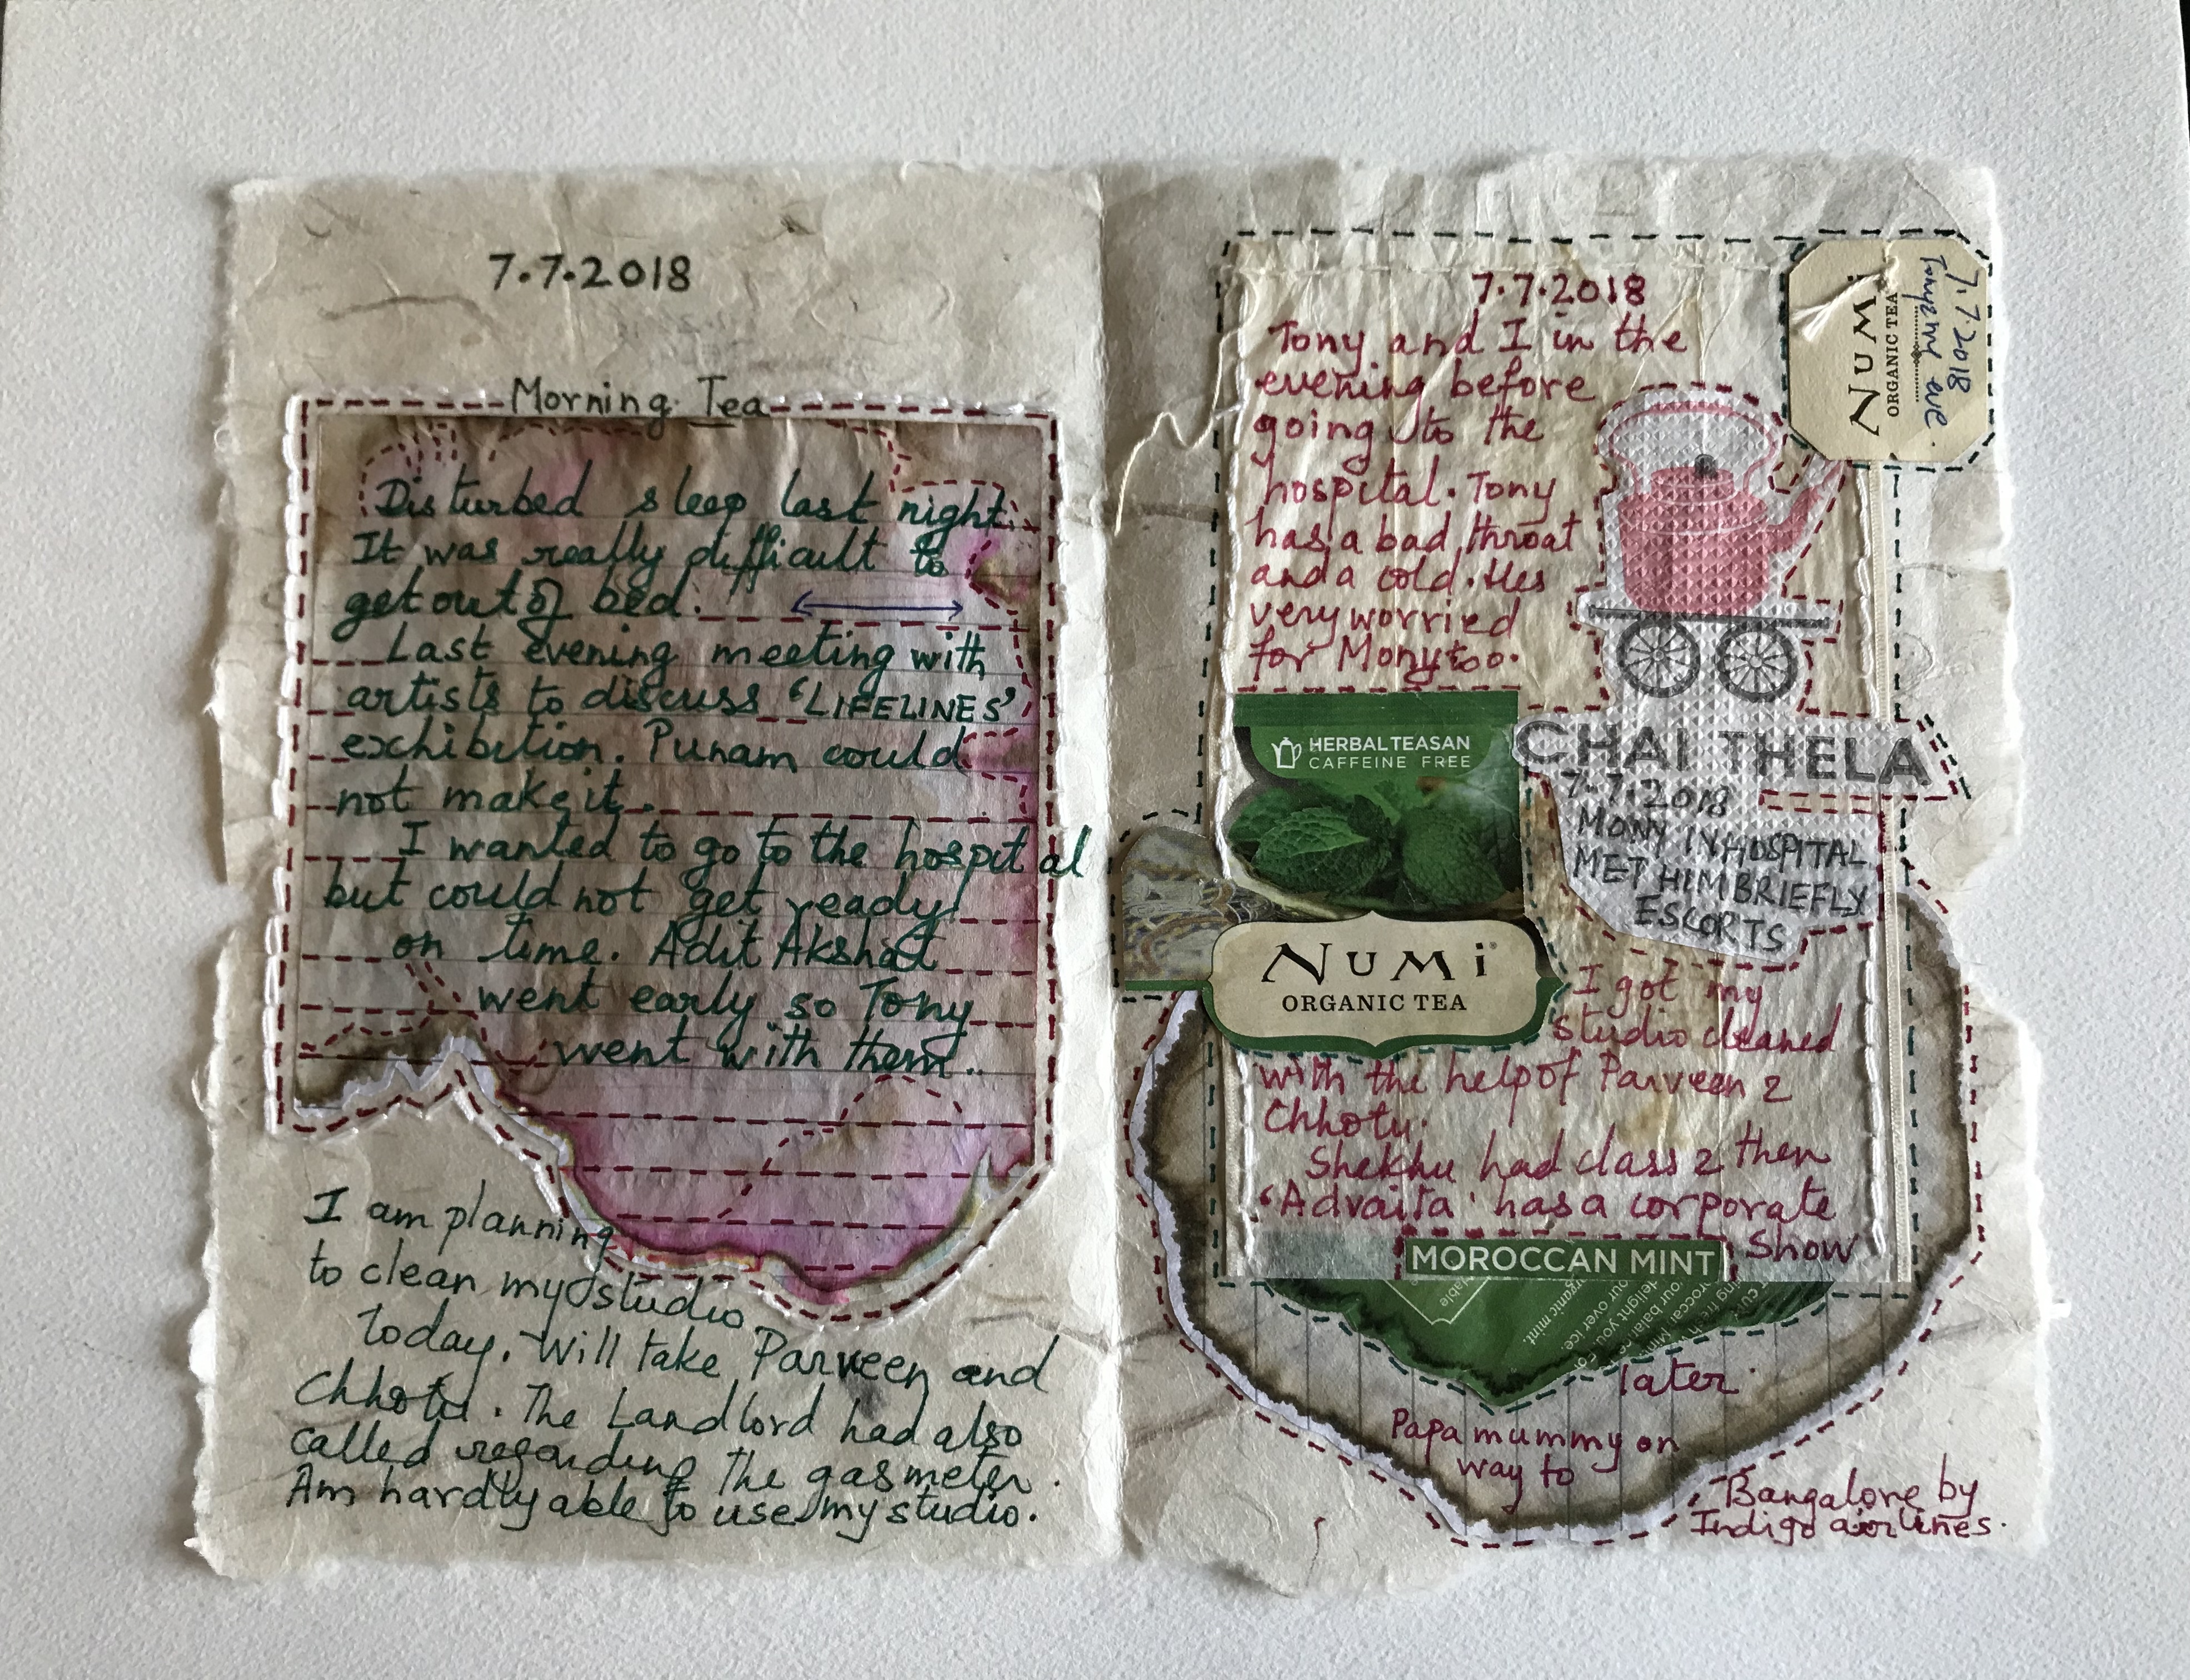 7.7.2018
Morning Tea
Disturbed sleep last night.
It was really difficult to
get out of bed.
Last evening meeting with
artists to discuss 'LIFELINES'
exhibition. Punam could
not make it.
I wanted to go to the hospital
but could not get ready
on time. Adit Akshat
went early so Tony
went with them..
I am planning
to clean my studio
today. Will take Parveen and
Chhotu. The Landlord had also
called regarding the gas meter.
Am hardly able to use my studio.
7.7.2018
Tony and I in the
evening before
going to the
hospital. Tony
has a bad throat
and a cold. Hes
very worried
for Mony too.
NUMi
ORGANIC TEA
7.7.2018
eve.
HERBAL TEASAN
CAFFEINE FREE
CHAI THELA
7.7.2018
MONY IN HOSPITAL
MET HIM BRIEFLY
ESCORTS
NUMi®
ORGANIC TEA
I got my
studio cleaned
with the help of Parveen &
Chhotu.
Shekhu had class & then
'Advaita' has a corporate
Show
MOROCCAN MINT
later
Papa mummy on
way to
Bangalore by
Indigo airlines.